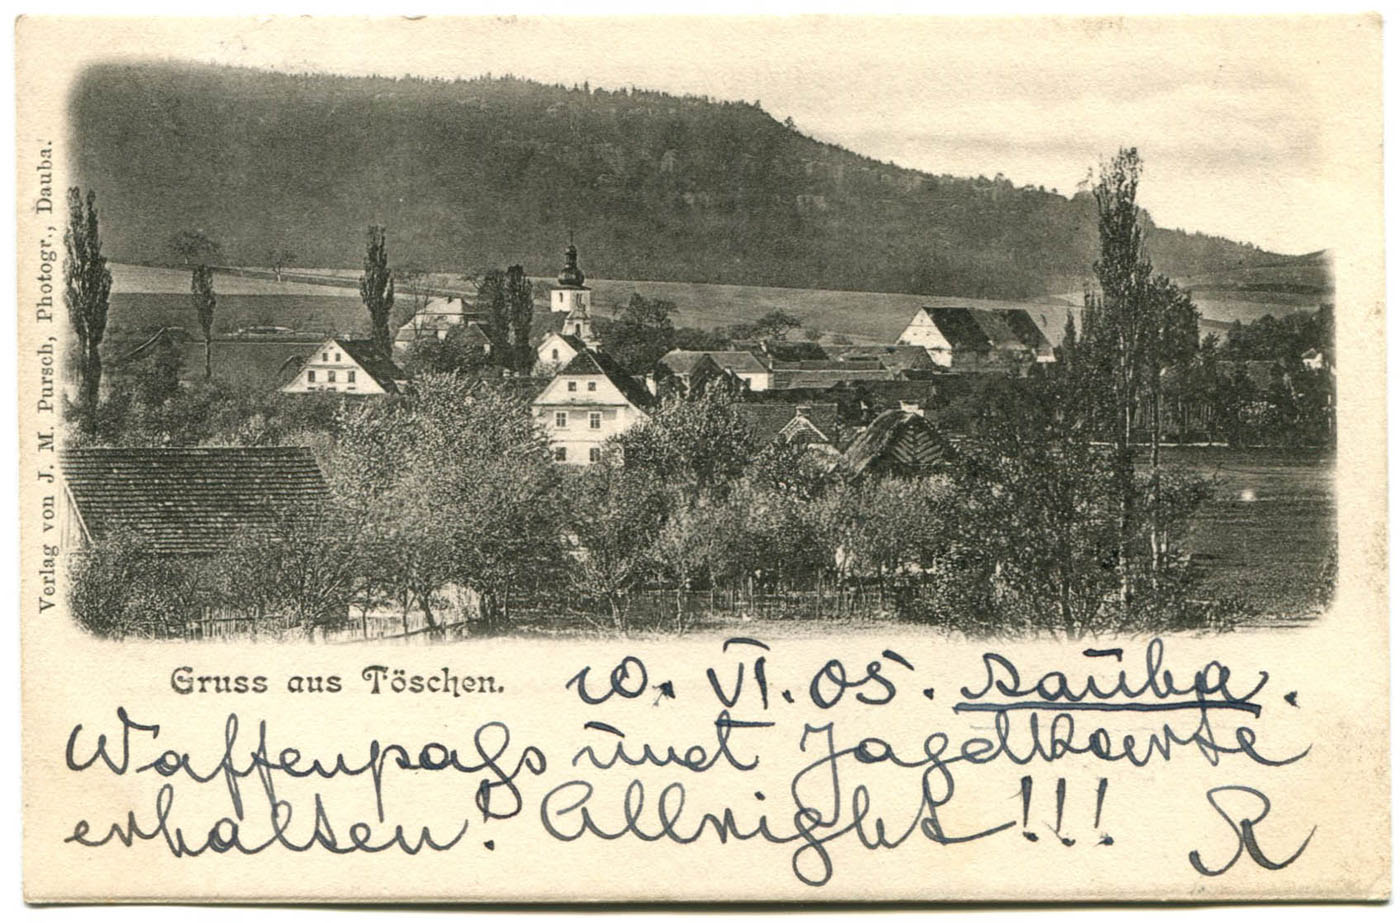 Verlag von J. M. Pursch, Photogr., Dauba.
Gruss aus Töschen.
10. VI. 05. Dauba.
Waffenpass und Jagdkarte
erhalten! Allright!!! R